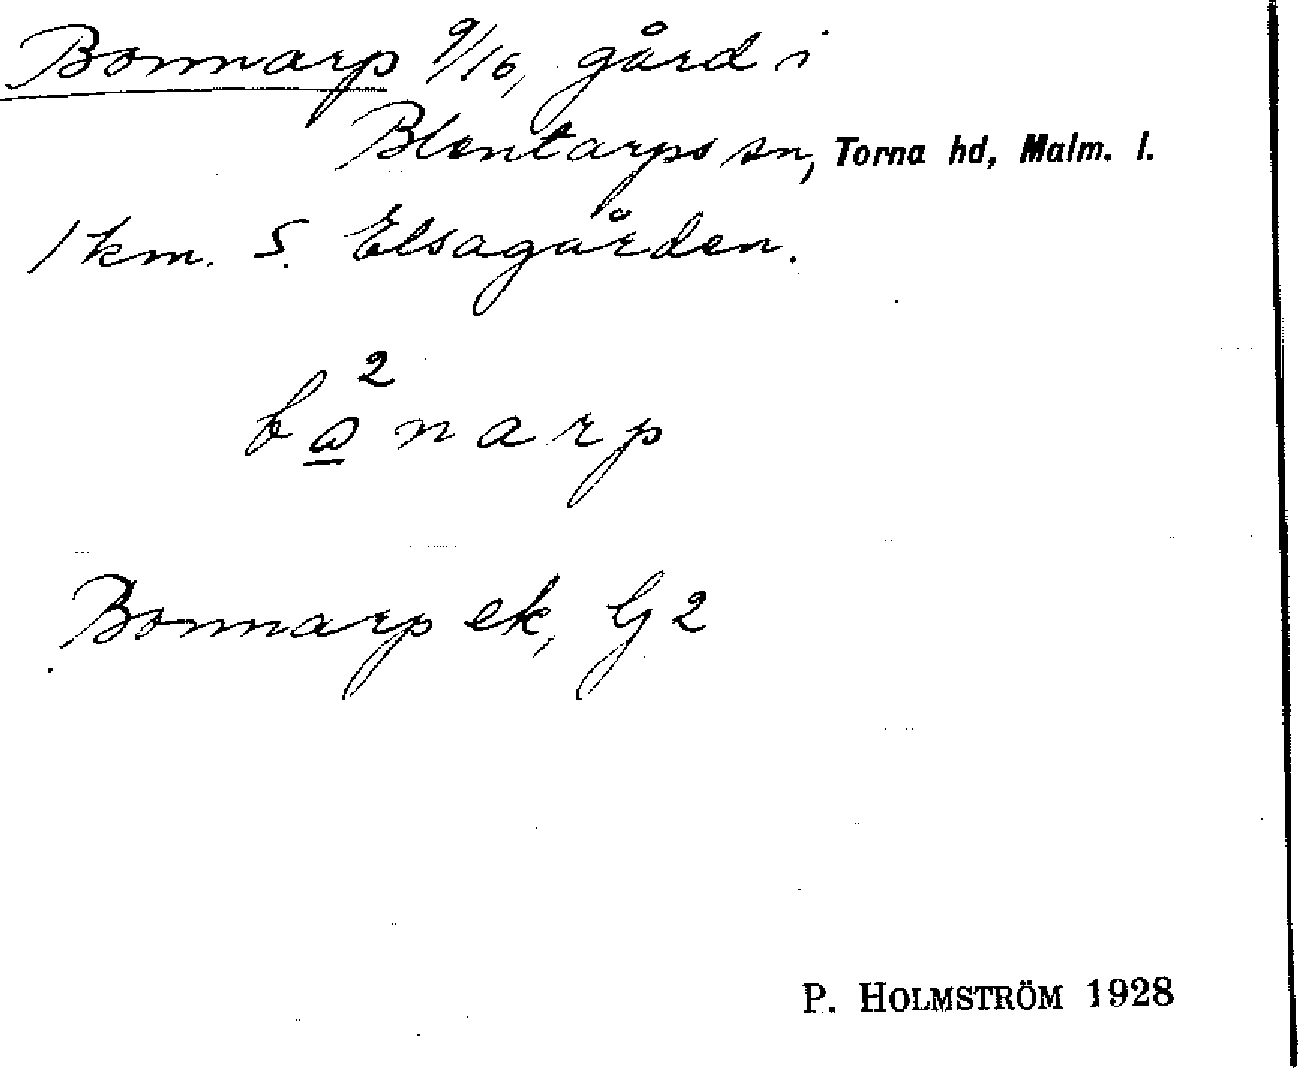 Bonnarp 9/16, gård i
Blentarps sn, Torna hd, Malm. l.
1 km. S. Elsagården.
2
narp
Bonnarp ek, G 2
P. HOLMSTRÖM 1928